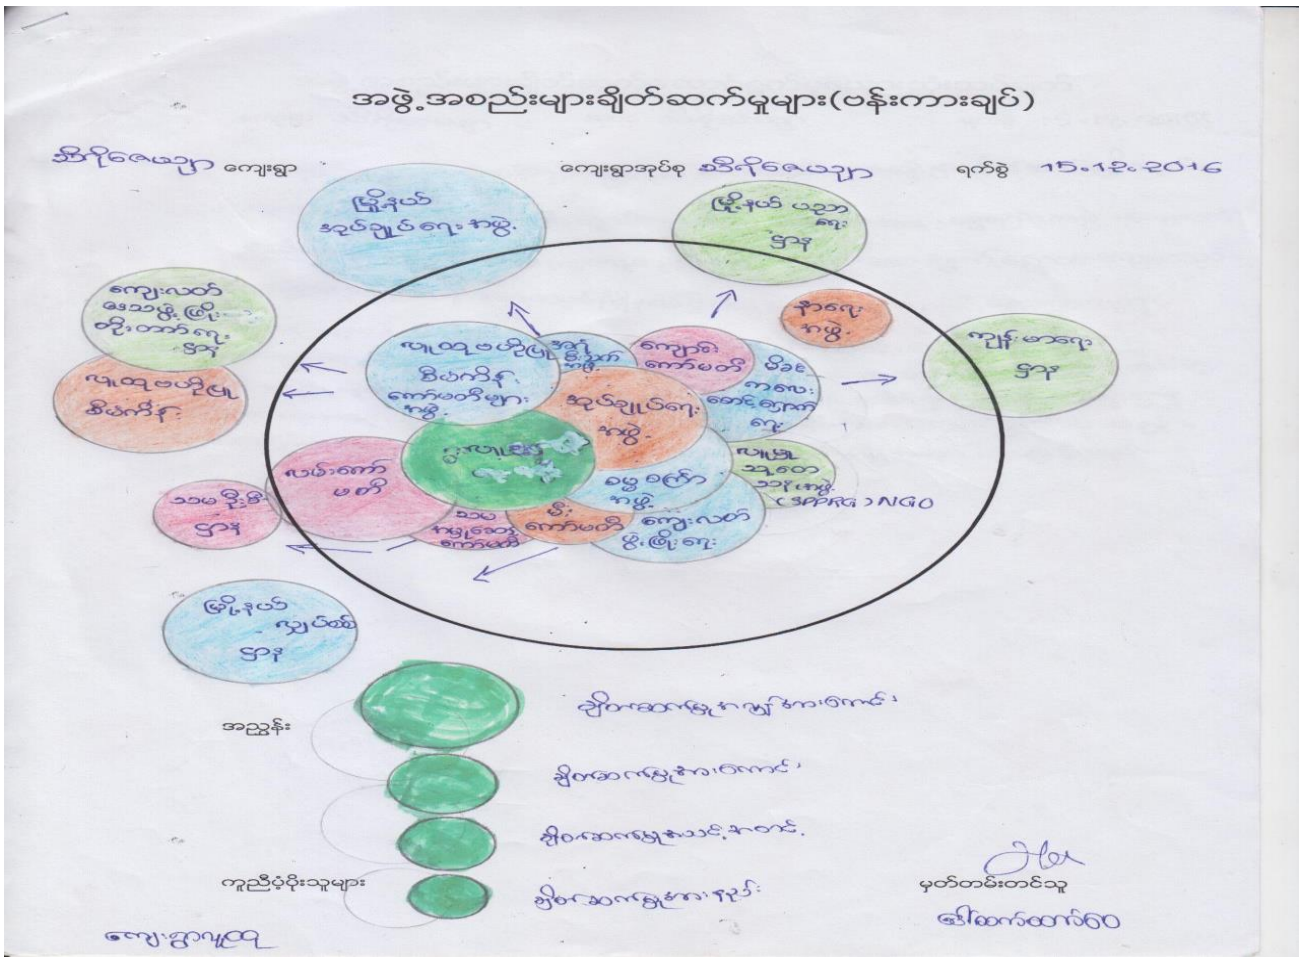 အဖွဲ့အစည်းများချိတ်ဆက်မှုများ(ဗန်းကားချပ်)
သီရိဇေယျာ ကျေးရွာ
ကျေးရွာအုပ်စု သီရိဇေယျာ
ရက်စွဲ 15.12.2016
မြို့နယ်
အုပ်ချုပ်ရေးအဖွဲ့
မြို့နယ် ပညာ
ရေး
ဌာန
ကျေးလတ်
ဒေသဖွံ့ဖြိုး
တိုးတတ်ရေး
ဌာန
နာရေး
အဖွဲ့
ကျန်းမာရေး
ဌာန
လူထုဗဟိုပြု
စီမံကိန်း
လူထုဗဟိုပြု
စီမံကိန်း
ကော်မတီများ
အဖွဲ့
ကျောင်း
ကော်မတီ
မိခင်
ကလေး
စောင့်ရှောက်
ရေး
အုပ်ချုပ်ရေး
အဖွဲ့
လမ်းကော်
မတီ
ဓမ္မစကြာ
အဖွဲ့
(SPPRG) NGO
သမဦးစီး
ဌာန
သမ
ကော်မတီ
မီး
ကော်မတီ
ကျေးလတ်
ဖွံ့ဖြိုးရေး
မြို့နယ်
လျှပ်စစ်
ဌာန
အညွှန်း
ချိတ်ဆက်မှုအလွန်အားကောင်း
ချိတ်ဆက်မှုအားကောင်း
ချိတ်ဆက်မှုအသင့်အတင့်
ချိတ်ဆက်မှုအားနည်း
ကူညီပံ့ပိုးသူများ
ကျေးရွာလူထု
မှတ်တမ်းတင်သူ
ဒေါ်ဆက်ထက်ဝေ